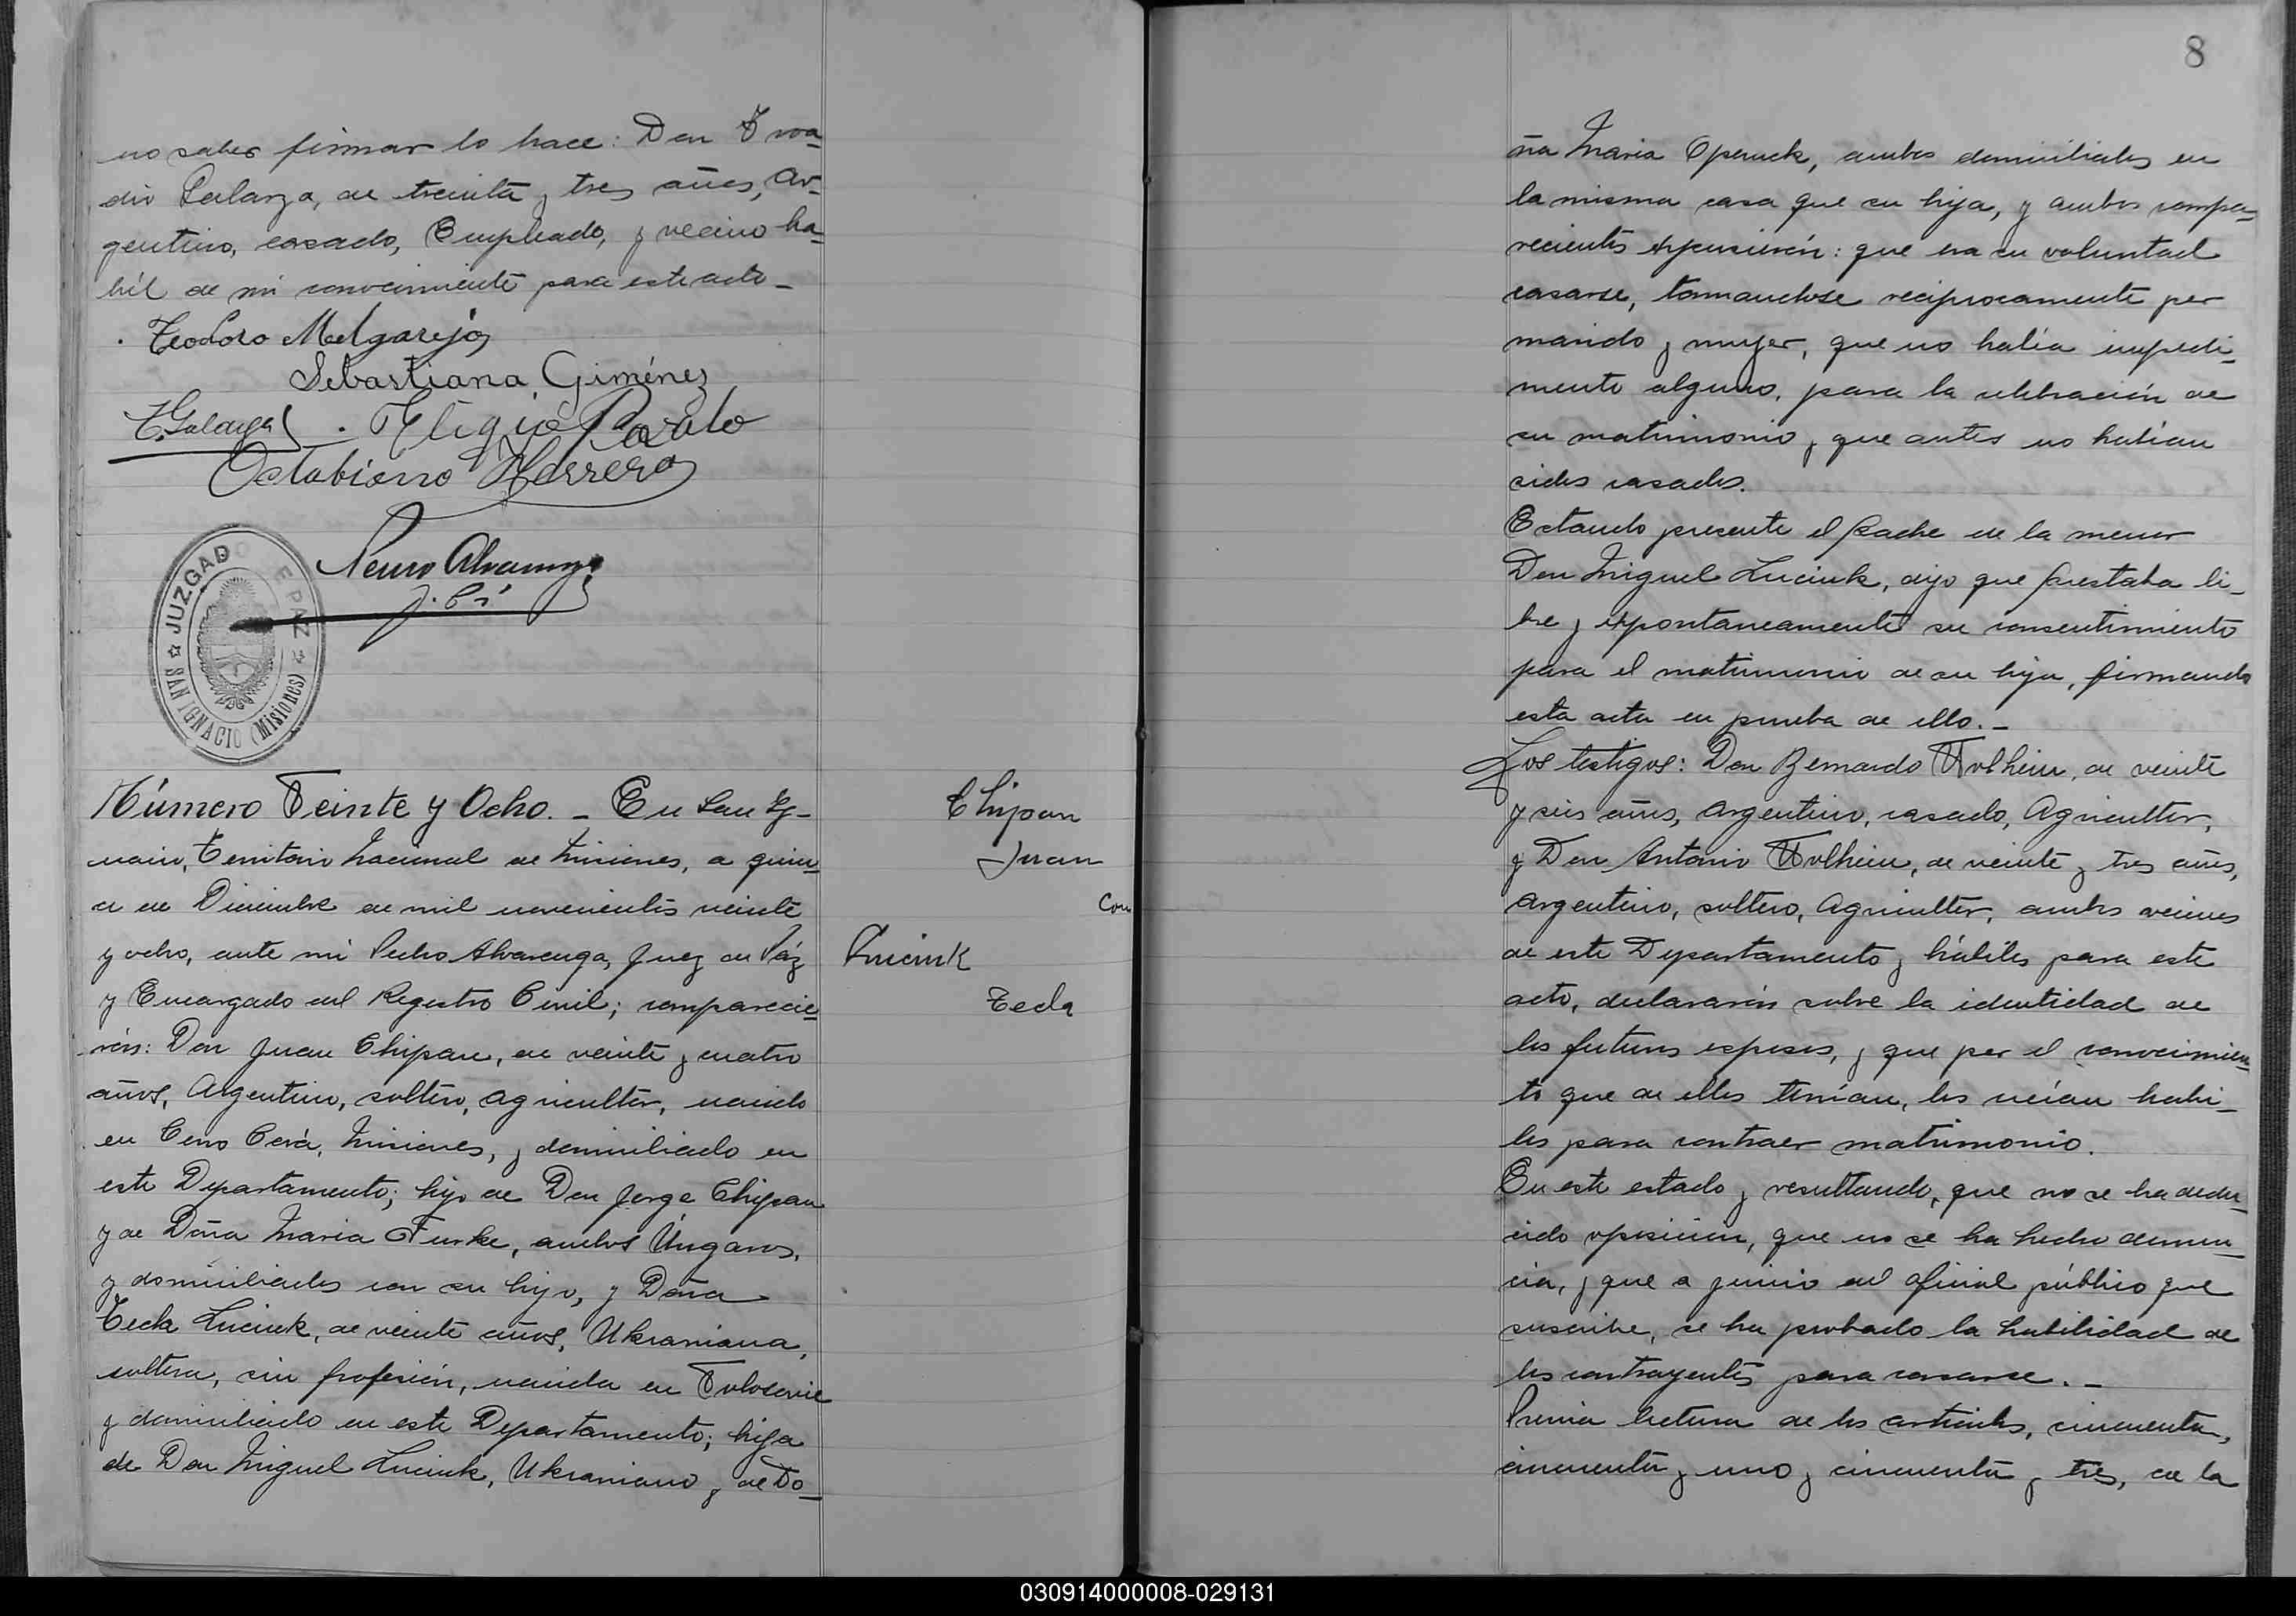 no saber firmar lo hace: Don
dio Galarza, de treinta y tres años, Ar-
gentino, casado, Empleado, y vecino ha-
bil de mi conocimiento para este acto_
Teodoro Melgarejo
Sebastiana Giménez
E. Galarza . Eligio
Octabiano Herrera
Pedro Alvarenga
J. P.
JUZGADO DE PAZ
SAN IGNACIO (Misiones)
Número Veinte y Ocho. _ En San Ig-
nacio, Territorio Nacional de Misiones, a quin-
ce de Diciembre de mil novecientos veinte
y ocho, ante mi Pedro Alvarenga, Juez de Páz
y Encargado del Registro Civil; comparecie-
rón: Don Juan Chipan, de veinte y cuatro
años, Argentino, soltero, agricultor, nacido
en Cerro Corá, Misiones, y domiciliado en
este Departamento; hijo de Don Jorge Chipan
y de Doña Maria Furke, ambos Úngaros,
y domiciliados con su hijo, y Doña
Tecla Luciuk, de veinte años, Ukraniana,
soltera, sin profesión, nacida en
y domiciliado en este Departamento; hija
de Don Miguel Luciuk, Ukraniano y de Do-
Chipan
Juan
Con
Luciuk
Tecla
8
ña Maria Operuck, ambos domiciliados en
la misma casa que su hija, y ambos compa-
recientes expusierón: que era su voluntad
casarse, tomandose reciprocamente por
marido y mujer, que no había impedi-
mento alguno, para la celebración de
su matrimonio y que antes no habían
sidos casados.
Estando presente el Padre de la menor
Don Miguel Luciuk, dijo que prestaba li-
bre y expontaneamente su consentimiento
para el matrimonio de su hija, firmando
esta acta en prueba de ello._
Los testigos: Don Bernardo Wolhein, de veinte
y seis años, argentino, casado, Agricultor,
y Don Antonio Wolhein, de veinte y tres años,
argentino, soltero, Agricultor, ambos vecinos
de este Departamento y hábiles para este
acto, declararón sobre la identidad de
los futuros esposos, y que por el conocimien-
to que de ellos tenían, los creían habi-
les para contraer matrimonio.
En este estado y resultando, que no se ha dedu-
cido oposicion, que no se ha hecho denun-
cia, y que a juicio del oficial público que
suscribe, se ha probado la habilidad de
los contrayentes para casarse._
Previa lectura de los articulos, cincuenta,
cincuenta y uno y cincuenta y tres, de la
030914000008-029131